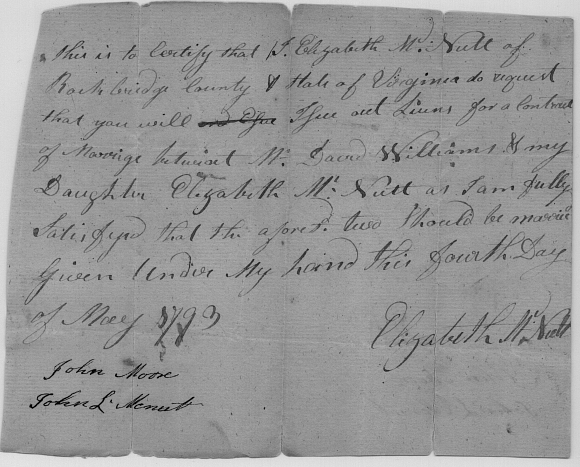 This is to Certify that I. Elizabeth Mc. Nutt of
Rockbridge County & State of Virginia do request
that you will Isue out Liuns for a Contract
of Marrige betwixt Mr. David Williams & my
Daughter Elizabeth Mc. Nutt as I am fully
Satisfyd that the aforesd. two Should be marrid
Given Under My hand this fourth Day
of May 1793
Elizabeth Mc Nutt
John Moore
John L. Mcnutt